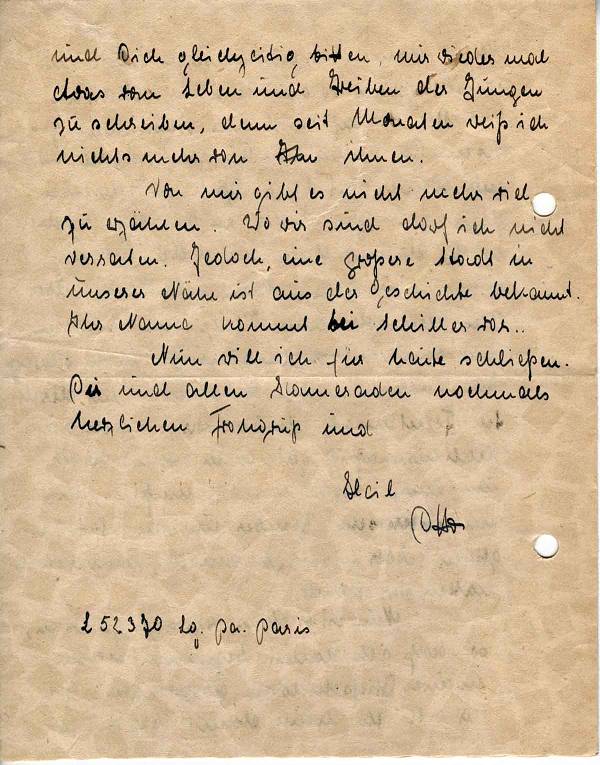 und Dich gleichzeitig bitten, mir wieder mal
etwas vom Leben und Treiben der Jungen
zu schreiben, denn seit Monaten weiß ich
nichts mehr von ihnen.
Von mir gibt es nicht mehr viel
zu erzählen. Wo wir sind darf ich nicht
verraten. Jedoch, eine größere Stadt in
unserer Nähe ist aus der Geschichte bekannt.
Ihr Name kommt bei Schiller vor..
Nun will ich für heute schließen.
Dir und allen Kameraden nochmals
herzlichen Frontgruß und
Heil
Otto
L 52370 Lg. Pa. Paris